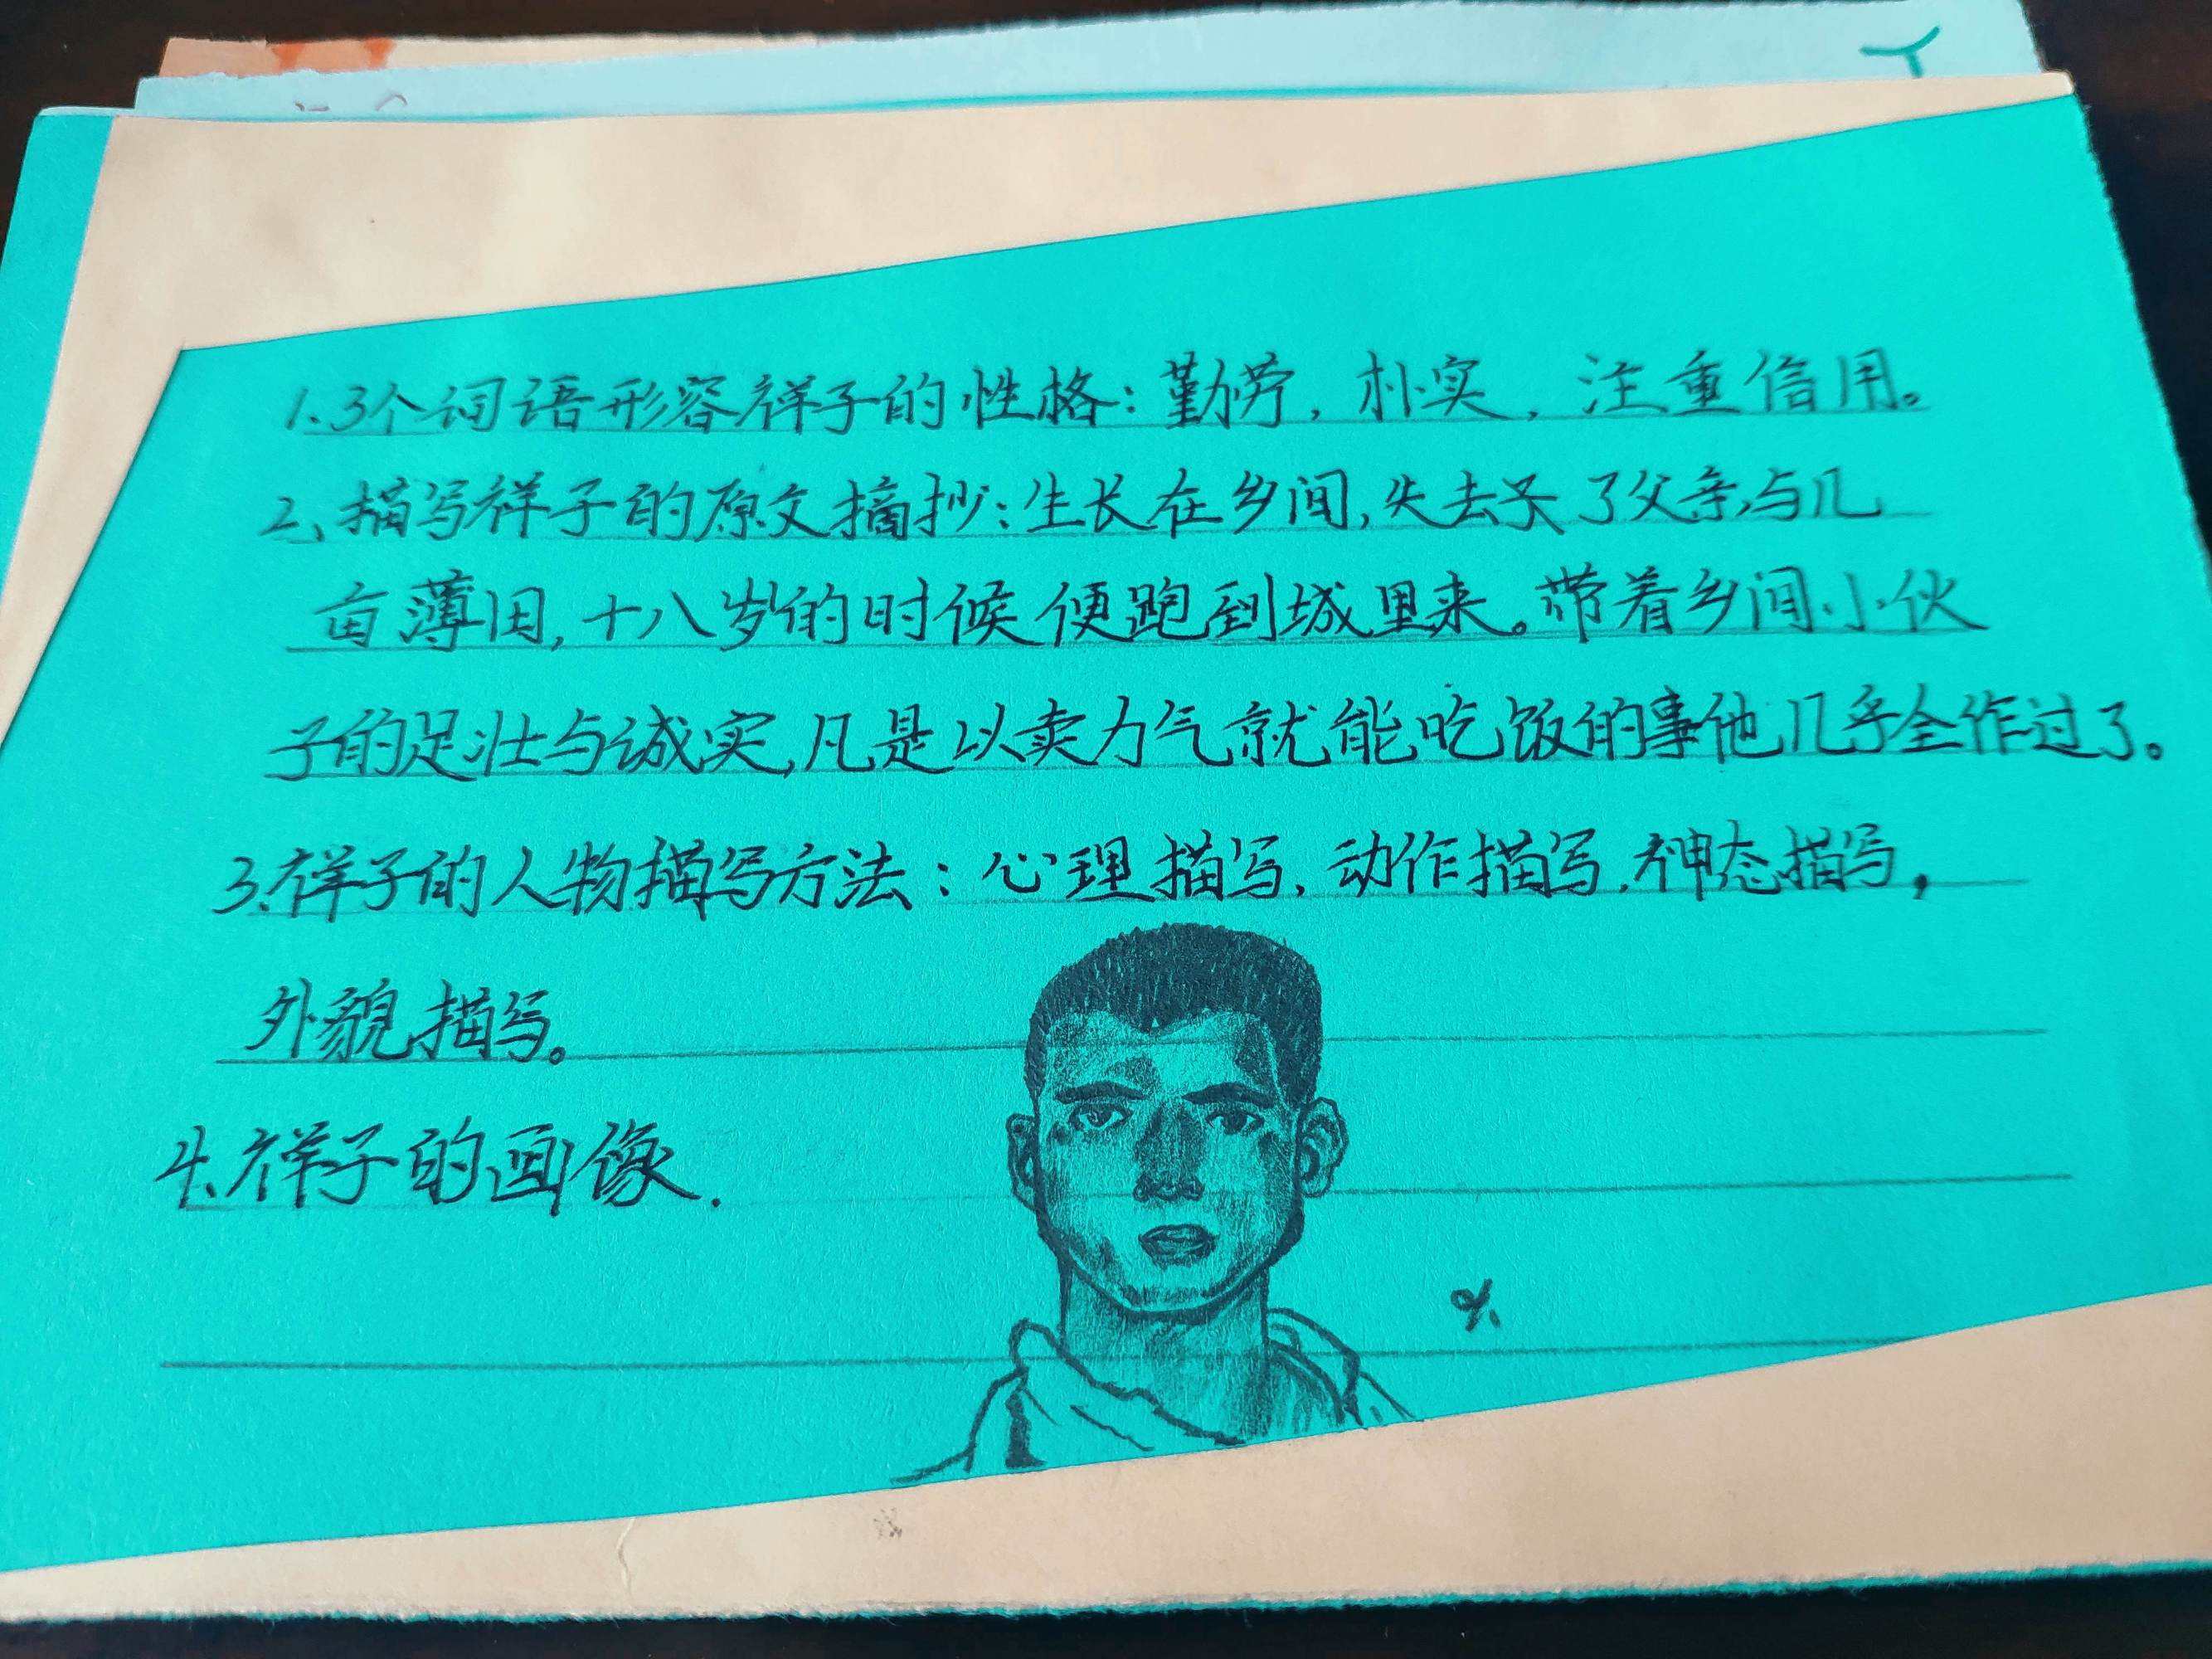 1.3个词语形容祥子的性格：勤劳，朴实，注重信用。
2、描写祥子的原文摘抄：生长在乡间，失去了父亲与几
亩薄田，十八岁的时候便跑到城里来。带着乡间小伙
子的足壮与诚实，凡是以卖力气就能吃饭的事他几乎全作过了。
3.祥子的人物描写方法：心理描写，动作描写，神态描写，
外貌描写。
4.祥子的画像.